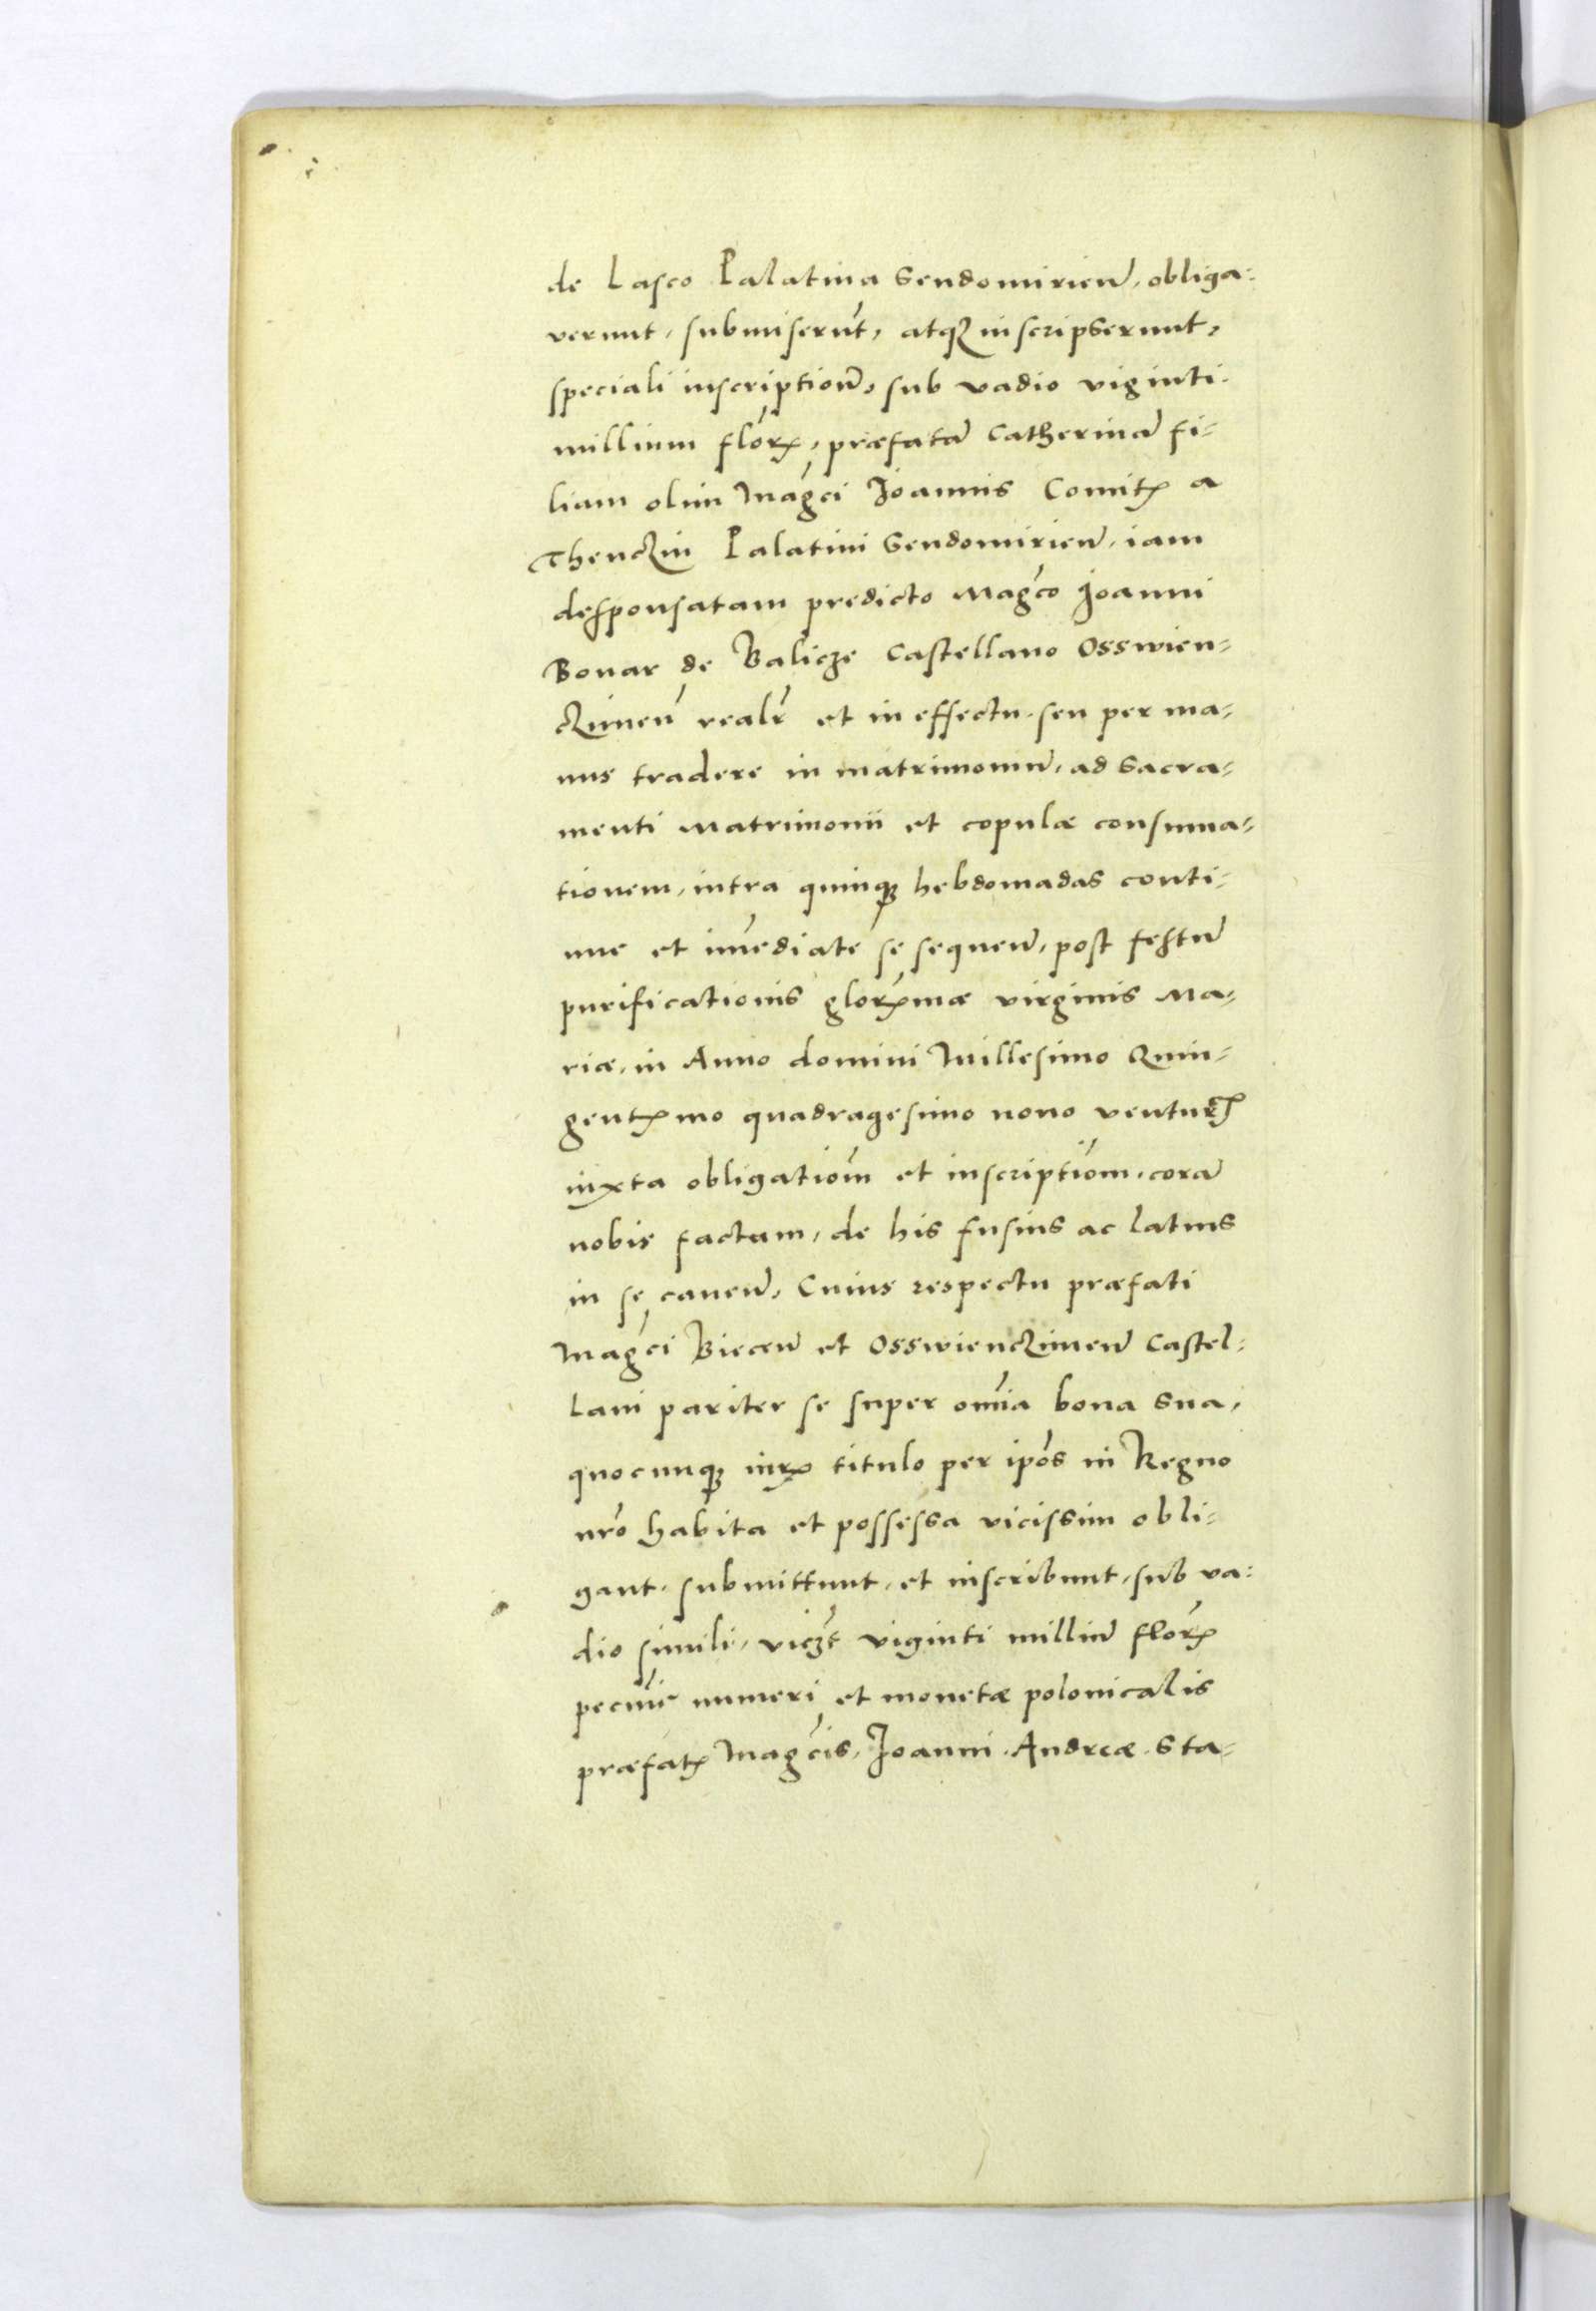 de Lasco Palatina Sendomirien̄, obliga:
verunt, submiserūt, atqꝫ inscripserunt,
speciali inscription̄, sub vadio viginti
millium florꝝ, præfatā Catherinā fi⸗
liam olim Magc̄i Joannis Comitꝭ a
Thenczin Palatini Sendomirien̄, iam
desponsatam predicto Magc̄o Joanni
Bonar de Balicze Castellano Osswien⸗
czimen̄ realr̄ et in effectu seu per ma⸗
nus tradere in matrimoniū, ad Sacra⸗
menti Matrimonii et copulæ consuma⸗
tionem, intra quinqꝫ hebdomadas conti⸗
nue et im̄ediate se sequen̄, post festū
purificationis glorꝭmæ virginis Ma⸗
riæ, in Anno domini Millesimo Quin⸗
gentꝭmo quadragesimo nono venturꝭ
iuxta obligatiōm et inscriptiōm, corā
nobis factam, de his fusius ac latius
in se caven̄, Cuius respectu præfati
Magc̄i Biecen̄ et Osswienczimen̄ Castel⸗
lani pariter se super om̄ia bona sua,
quocunqꝫ iurꝭ titulo per ip̄os in Regno
nr̄o habita et possessa vicissim obli⸗
gant, submittunt, et inscribunt, sub va:
dio simili, viczt̄ viginti milliū florꝝ
pecun̄ie numeri et monetæ polonicalis
præfatꝭ Magc̄is, Joanni, Andreæ, Sta⸗